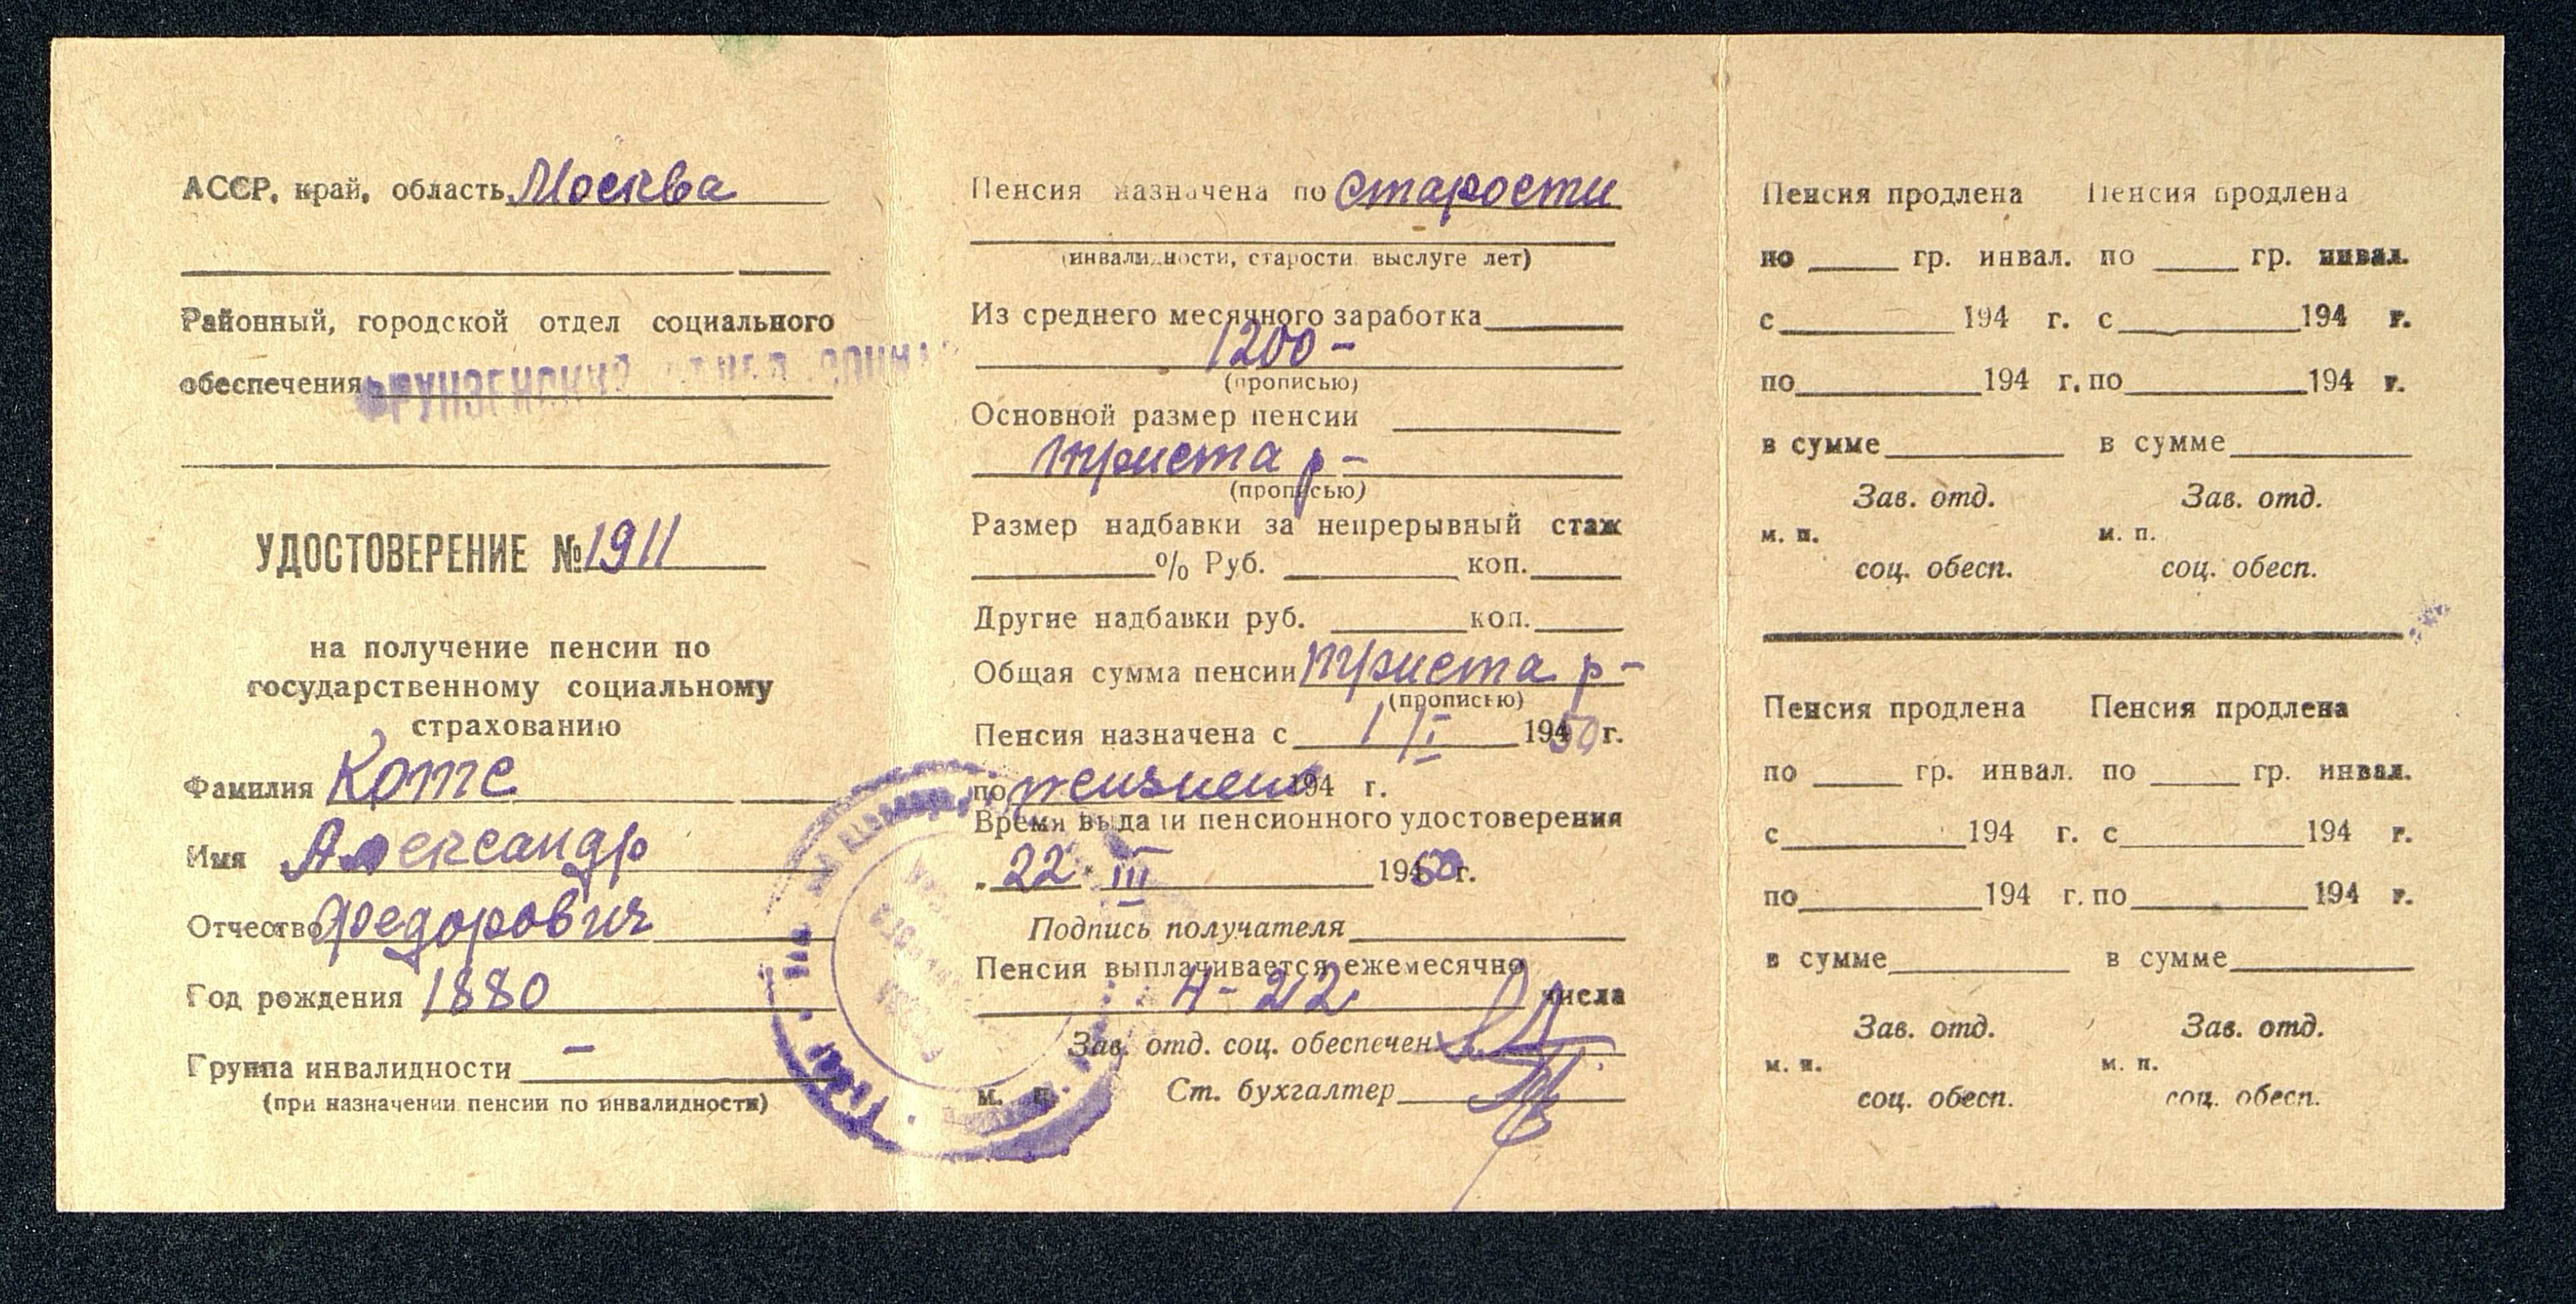 АССР, край, область Москва
Районный, городской отдел социального
обеспечения ФРУНЗЕНСКИЙ ОТДЕЛ СОЦИАЛ
УДОСТОВЕРЕНИЕ № 1911
на получение пенсии по
государственному социальному
страхованию
Фамилия Котс
Имя Александр
Отчество Федорович
Год рождения 1880
Группа инвалидности –
(при назначении пенсии по инвалидности)
Пенсия назначена по старости
(инвалидности, старости выслуге лет)
Из среднего месячного заработка
1200 –
(прописью)
Основной размер пенсии
триста р –
(прописью)
Размер надбавки за непрерывный стаж
% Руб. коп.
Другие надбавки руб. коп.
Общая сумма пенсии триста р –
(прописью)
Пенсия назначена с 1/I 1950 г.
по 194 г.
Время выдачи пенсионного удостоверения
„22" III 1950 г.
Подпись получателя
Пенсия выплачивается ежемесячно
4 – 22 числа
Зав. отд. соц. обеспечен
м. п. Ст. бухгалтер
Пенсия продлена Пенсия продлена
по гр. инвал. по гр. инвал.
с 194 г. с 194 г.
по 194 г. по 194 г.
в сумме в сумме
Зав. отд. Зав. отд.
м. п. м. п.
соц. обесп. соц. обесп.
Пенсия продлена Пенсия продлена
по гр. инвал. по гр. инвал.
с 194 г. с 194 г.
по 194 г. по 194 г.
в сумме в сумме
Зав. отд. Зав. отд.
м. п. м. п.
соц. обесп. соц. обесп.